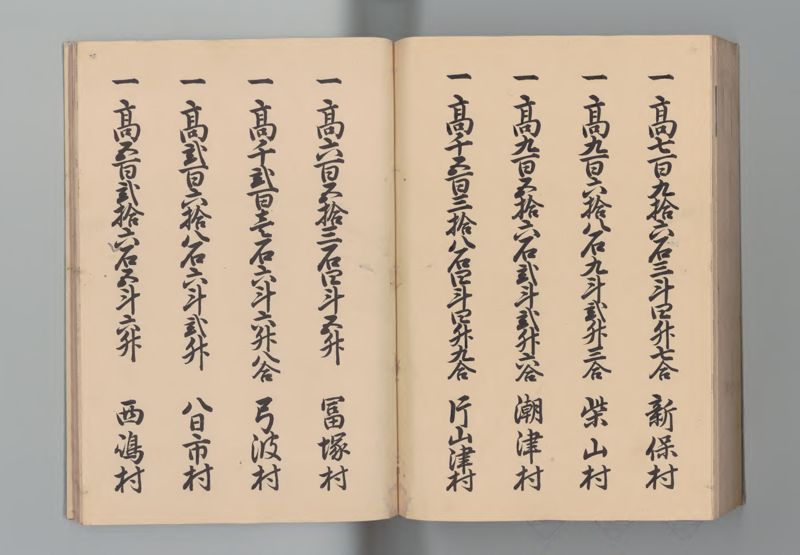 一 高七百九拾六石三斗四升七合 新保村
一 高九百六拾八石九斗弐升三合 柴山村
一 高九百五拾六石弐斗弐升六合 潮津村
一 高千五百三拾八石四斗四升九合 片山津村
一 高六百五拾三石四斗五升 冨塚村
一 高千弐百壱石六斗六升八合 弓波村
一 高弐百六拾八石六斗弐升 八日市村
一 高五百弐拾六石五斗六升 西嶋村